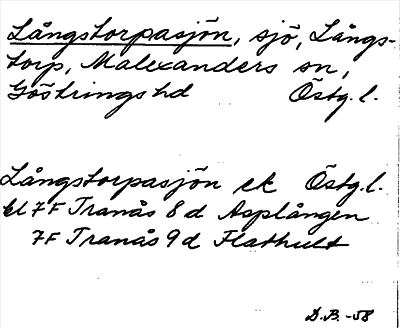 Långstorpasjön, sjö, Långs-
torp, Malexanders sn,
Göstrings hd Östg. l.
Långstorpasjön ek Östg. l.
bl 7F Tranås 8d Asplången
7F Tranås 9d Flathult
D.B. -58